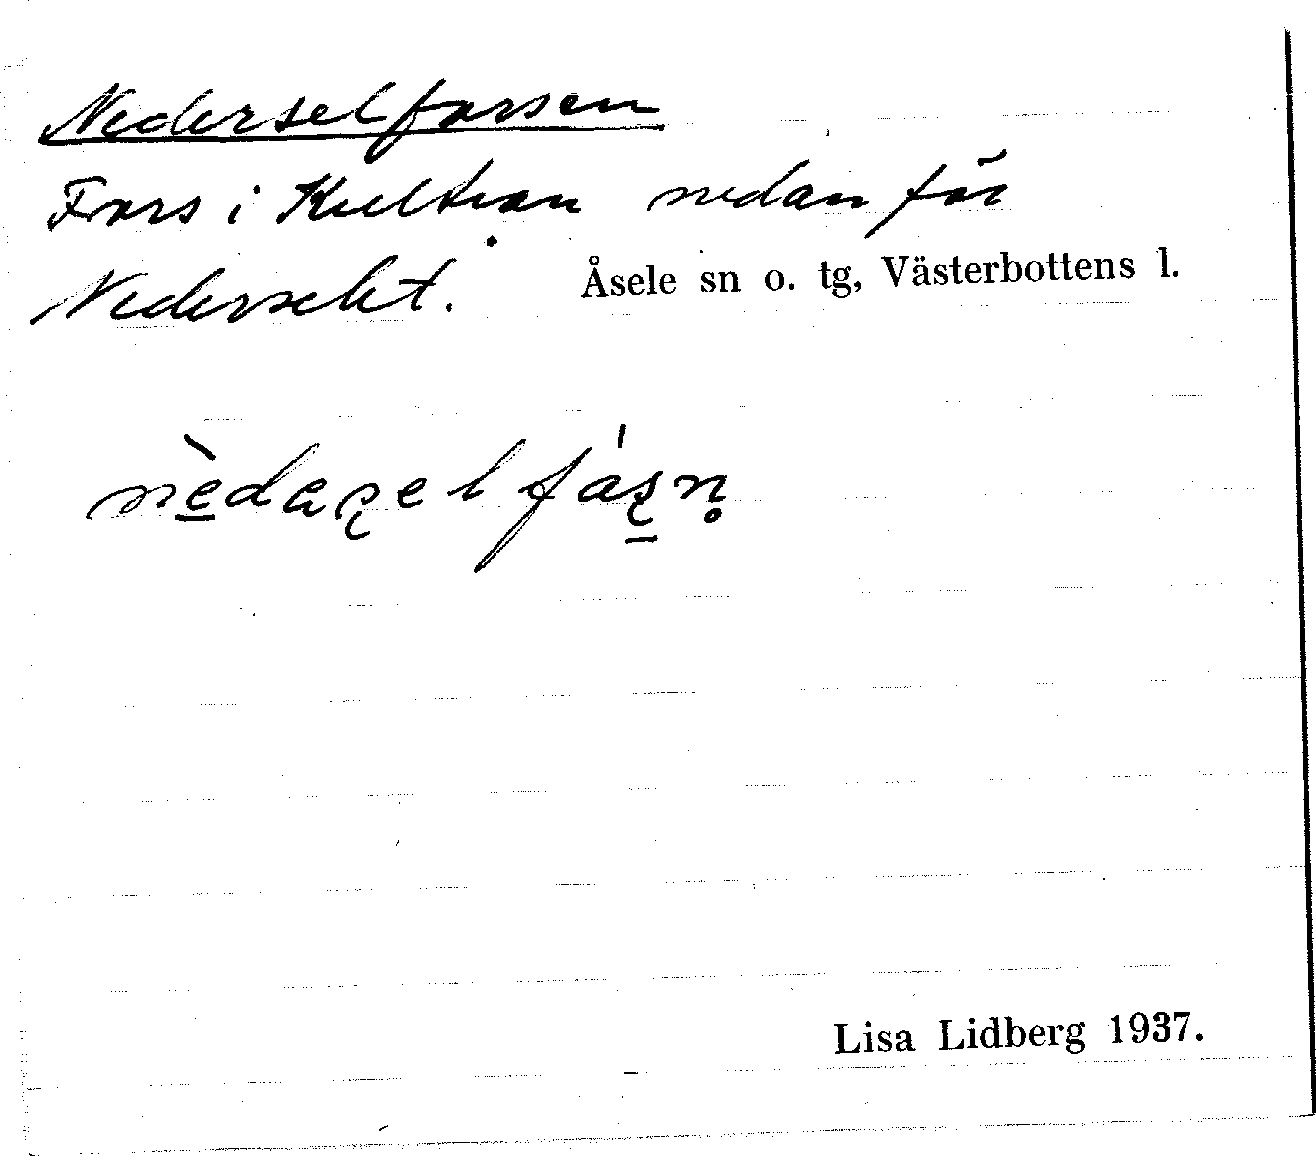 Nederselforsen
Fors i Kultran nedan för
Nederselet. Åsele sn o. tg, Västerbottens l.
nèdaʂel fáʂn̥
Lisa Lidberg 1937.